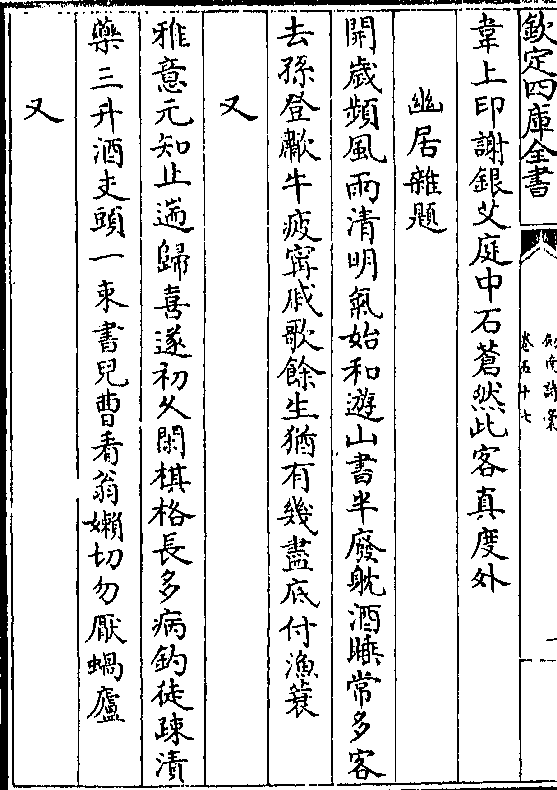 欽定四庫全書
劍南詩藁
卷五十七
一
韋上印謝銀艾庭中石蒼然此客真度外
幽居雜題
開歲頻風雨清明氣始和遊山書半廢躭酒睡常多客
去孫登歗牛疲甯戚歌餘生猶有幾盡底付漁蓑
又
雅意元知止遄歸喜遂初久閑棋格長多病釣徒疎漬
藥三升酒支頭一束書兒曹看翁嬾切勿厭蝸廬
又